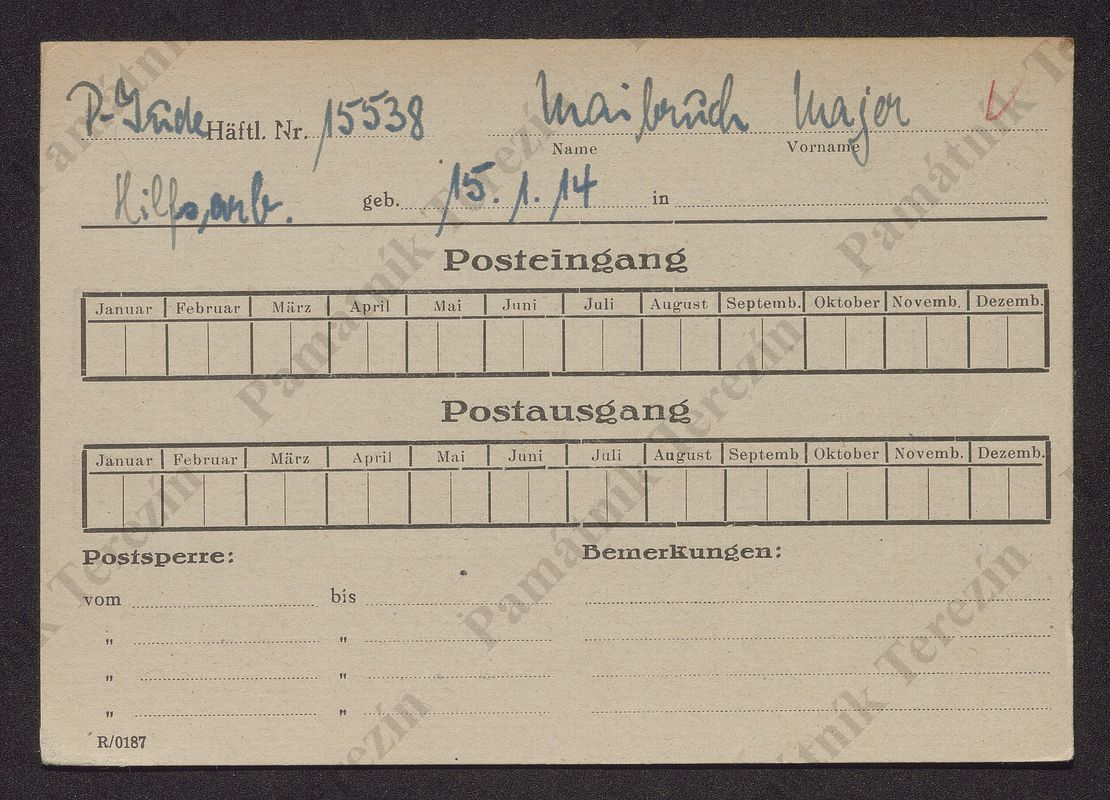 P-Jude Häftl. Nr. 15538 Maibruch Majer
Name Vorname
Hilfsarb. geb. 15. 1. 14 in
Posteingang
Januar Februar März April Mai Juni Juli August Septemb. Oktober Novemb. Dezemb.
Postausgang
Januar Februar März April Mai Juni Juli August Septemb Oktober Novemb. Dezemb.
Postsperre: Bemerkungen:
vom bis
" "
" "
" "
R/0187
Památník Terezín